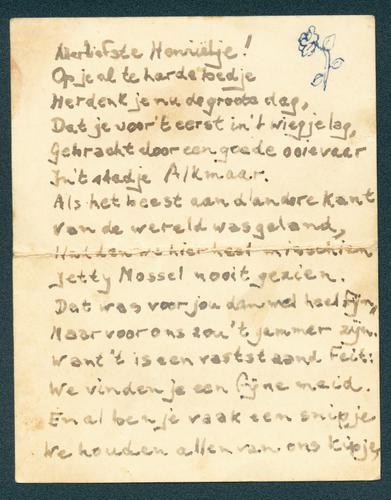 Allerliefste Henriëtje!
Op je al te harde bedje
Herdenk je nu de groote dag,
Dat je voor 't eerst in 't wiegje lag,
Gebracht door een goede ooievaar
In 't stadje Alkmaar.
Als het beest aan d'andere kant
van de wereld was geland,
Hadden we hier heel misschien
Jetty Mossel nooit gezien.
Dat was voor jou dan wel heel fijn,
Maar voor ons zou 't jammer zijn.
Want 't is een vaststaand feit:
We vinden je een fijne meid.
En al ben je vaak een snipje
We houden allen van ons kipje,